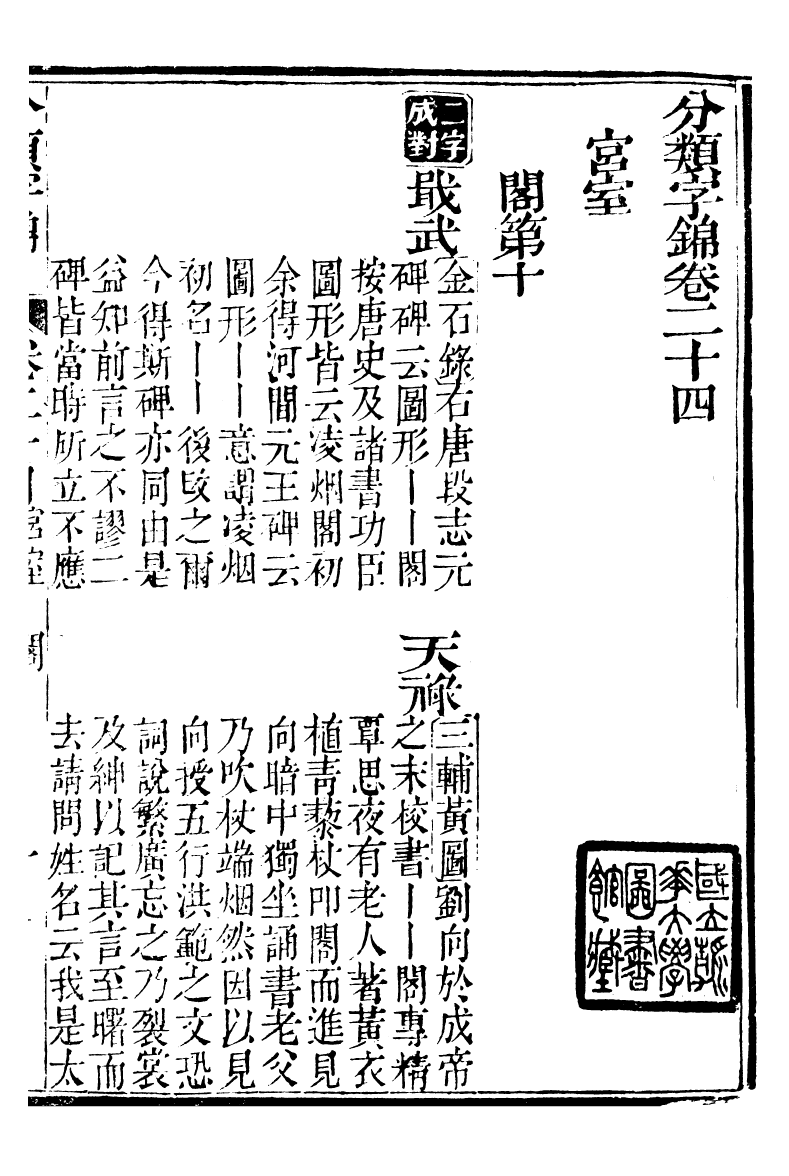 分類字錦卷二十四
宮室
閣第十
二字
成對
戢武
金石錄右唐段志元
碑碑云圖形丨丨閣
按唐史及諸書功臣
圖形皆云凌烟閣初
余得河間元王碑云
圖形丨丨意謂凌烟
初名丨丨後攺之爾
今得斯碑亦同由是
益知前言之不謬二
碑皆當時所立不應
天祿
三輔黃圖劉向於成帝
之末校書丨丨閣專精
覃思夜有老人著黃衣
植青藜杖叩閣而進見
向暗中獨坐誦書老父
乃吹杖端烟然因以見
向授五行洪範之文恐
詞說繁廣忘之乃裂裳
及紳以記其言至曙而
去請問姓名云我是太
國立
大學
圖書
館藏